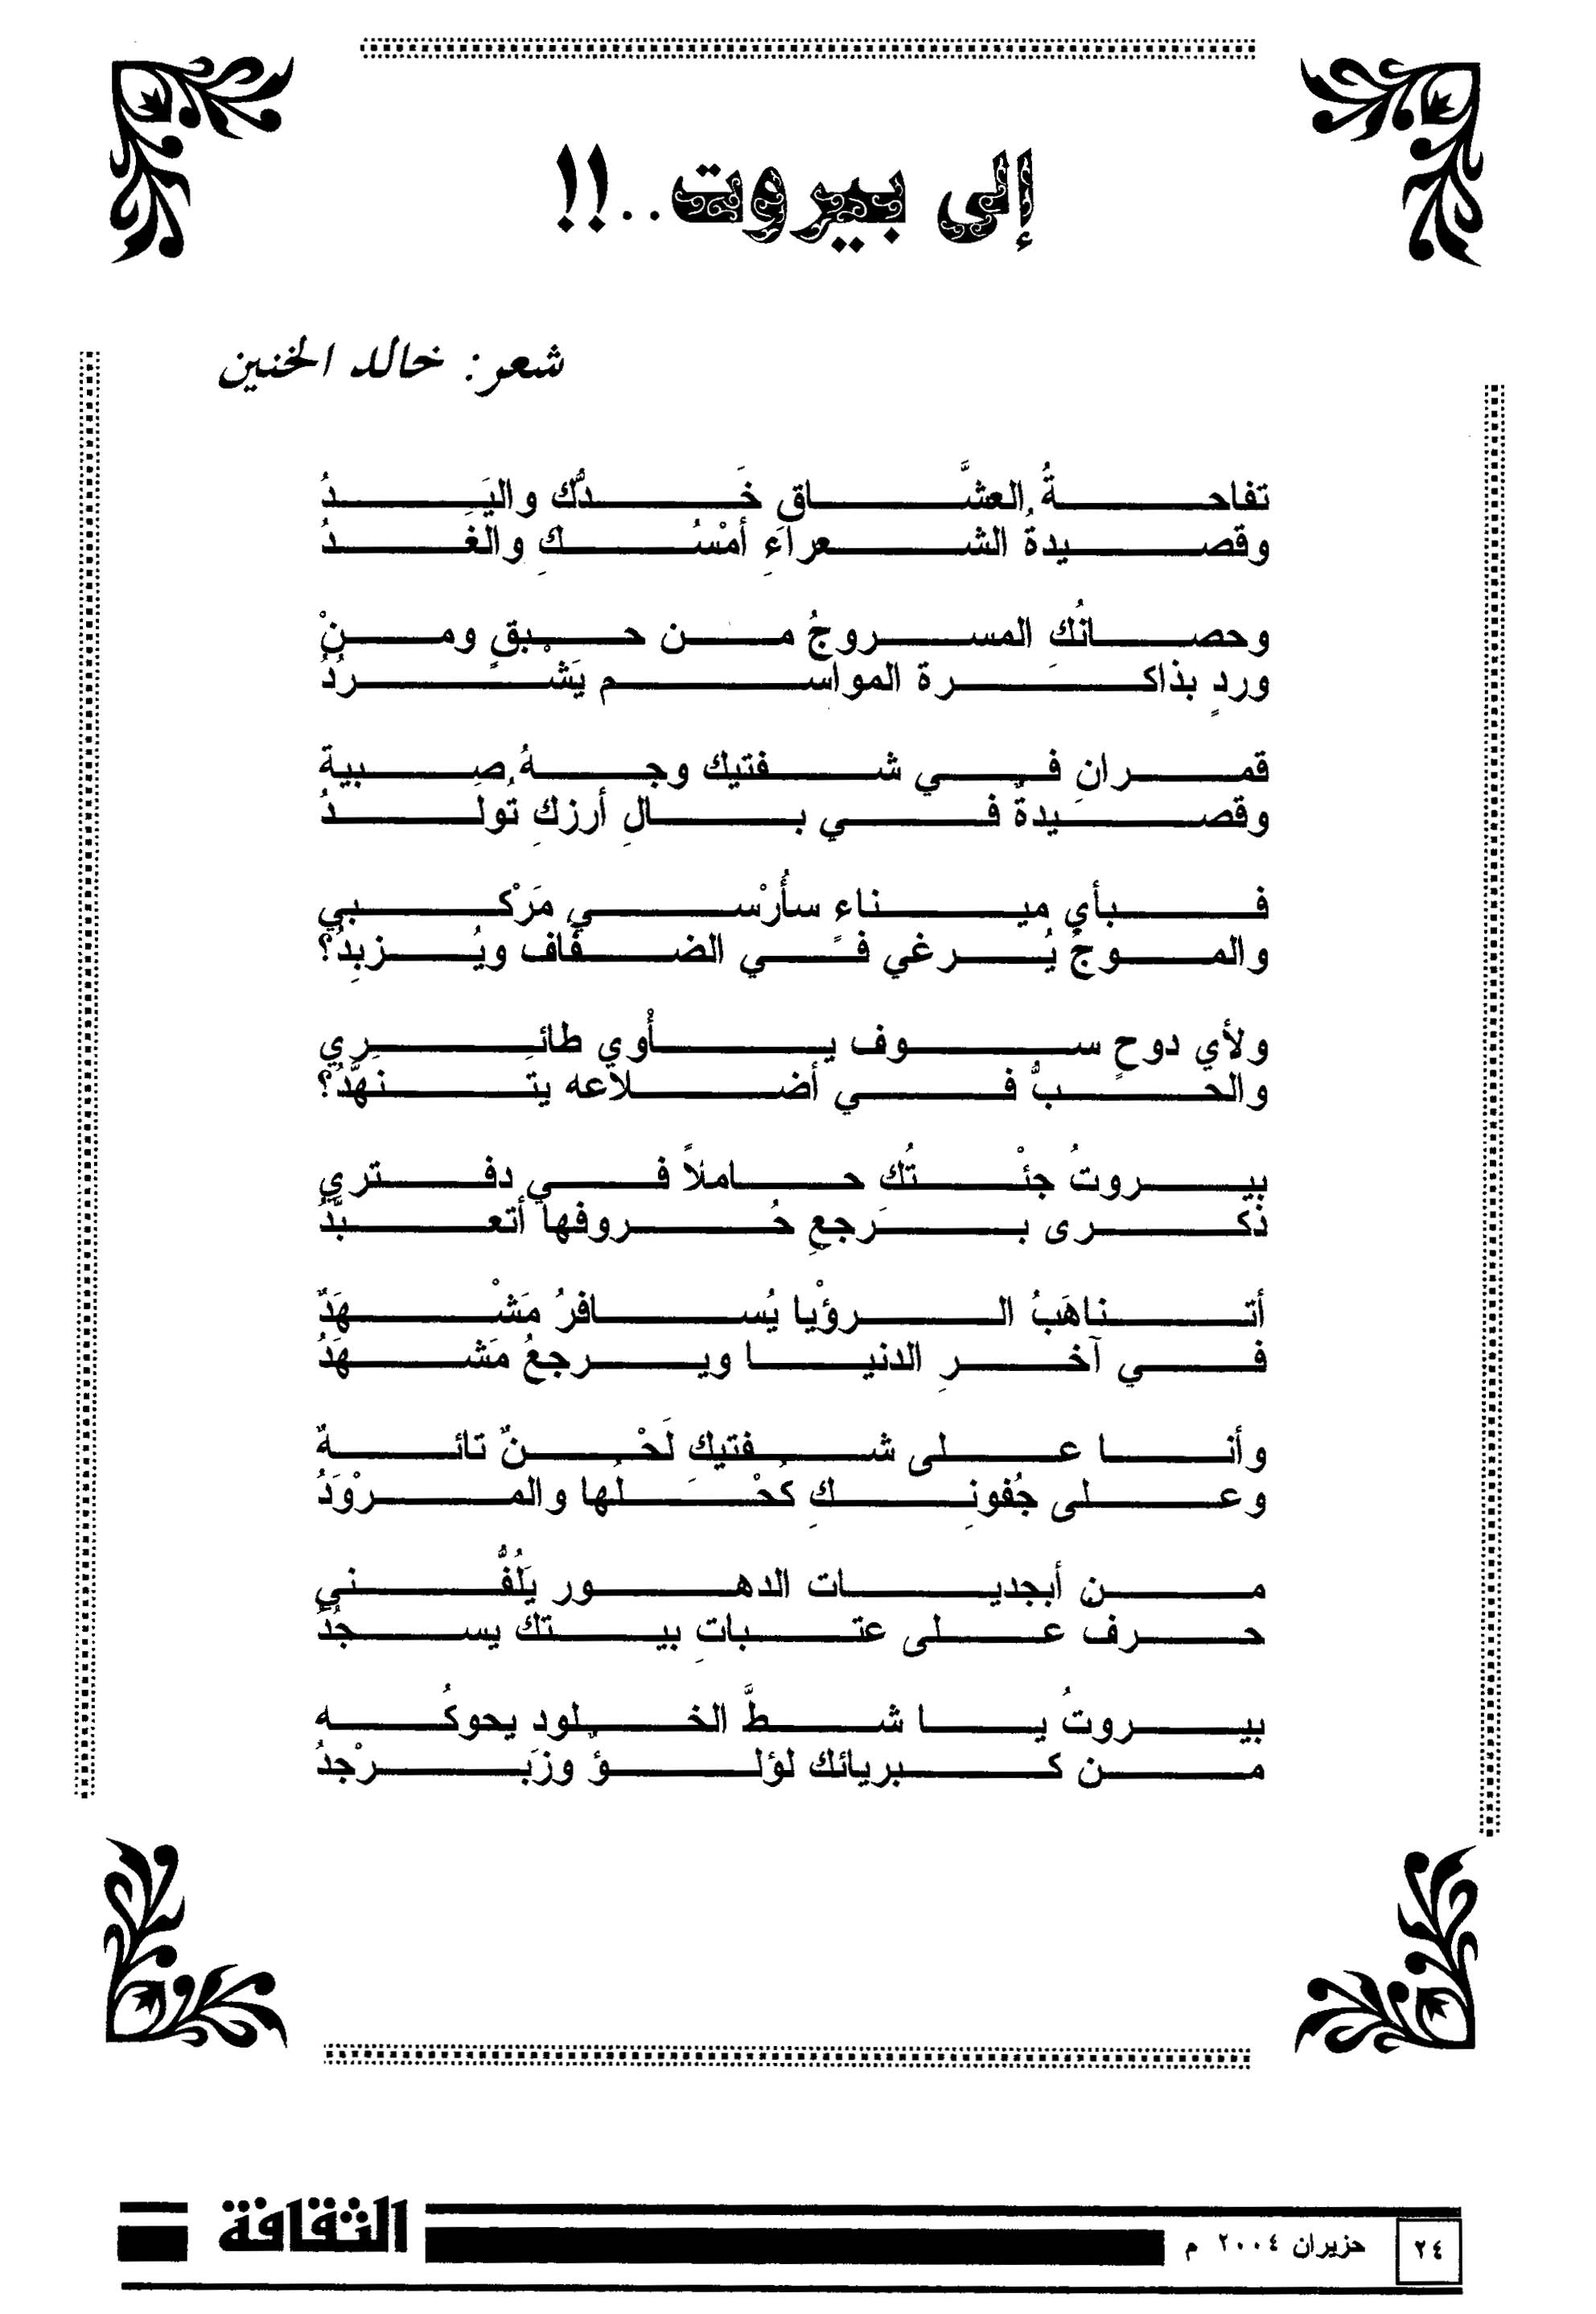 إلى بيروت..!!
شعر: خالد الخنين
تفاحةُ العشَّاق خَدُّك واليَدُ
وقصيدةُ الشعراءِ أمْسُكِ والغَدُ
وحصانُك المسروجُ من حبْقٍ ومنْ
وردٍ بذاكرة المواسم يَشْرُدُ
قمرانِ في شفتيك وجهُ صبيةَ
وقصيدةٌ في بالِ أرزكِ تُولَدُ
فبأي ميناءٍ سأُرْسي مَرْكبي
والموجُ يُرغي في الضفاف ويُزبِدُ؟
ولأي دوحٍ سوف يأْوي طائِري
والحبُّ في أضلاعه يتنهَّدُ؟
بيروتُ جئْتُك حاملاً في دفتري
ذكرى برَجعِ حُروفها أتعبَّدُ
أتناهَبُ الرؤْيا يُسافرُ مَشْهَدٌ
في آخرِ الدنيا ويرجعُ مَشهَدُ
وأنا على شفتيك لَحْنٌ تائهٌ
وعلى جُفونِكِ كُحْلُها والمرْوَدُ
من أبجديات الدهور يَلُفُّني
حرف على عتباتِ بيتك يسجُدُ
بيروتُ يا شطَّ الخلود يحوكُه
من كبريائك لؤلؤٌ وزَبرْجدُ
٢٤ حزيران ٢٠٠٤ م الثقافة